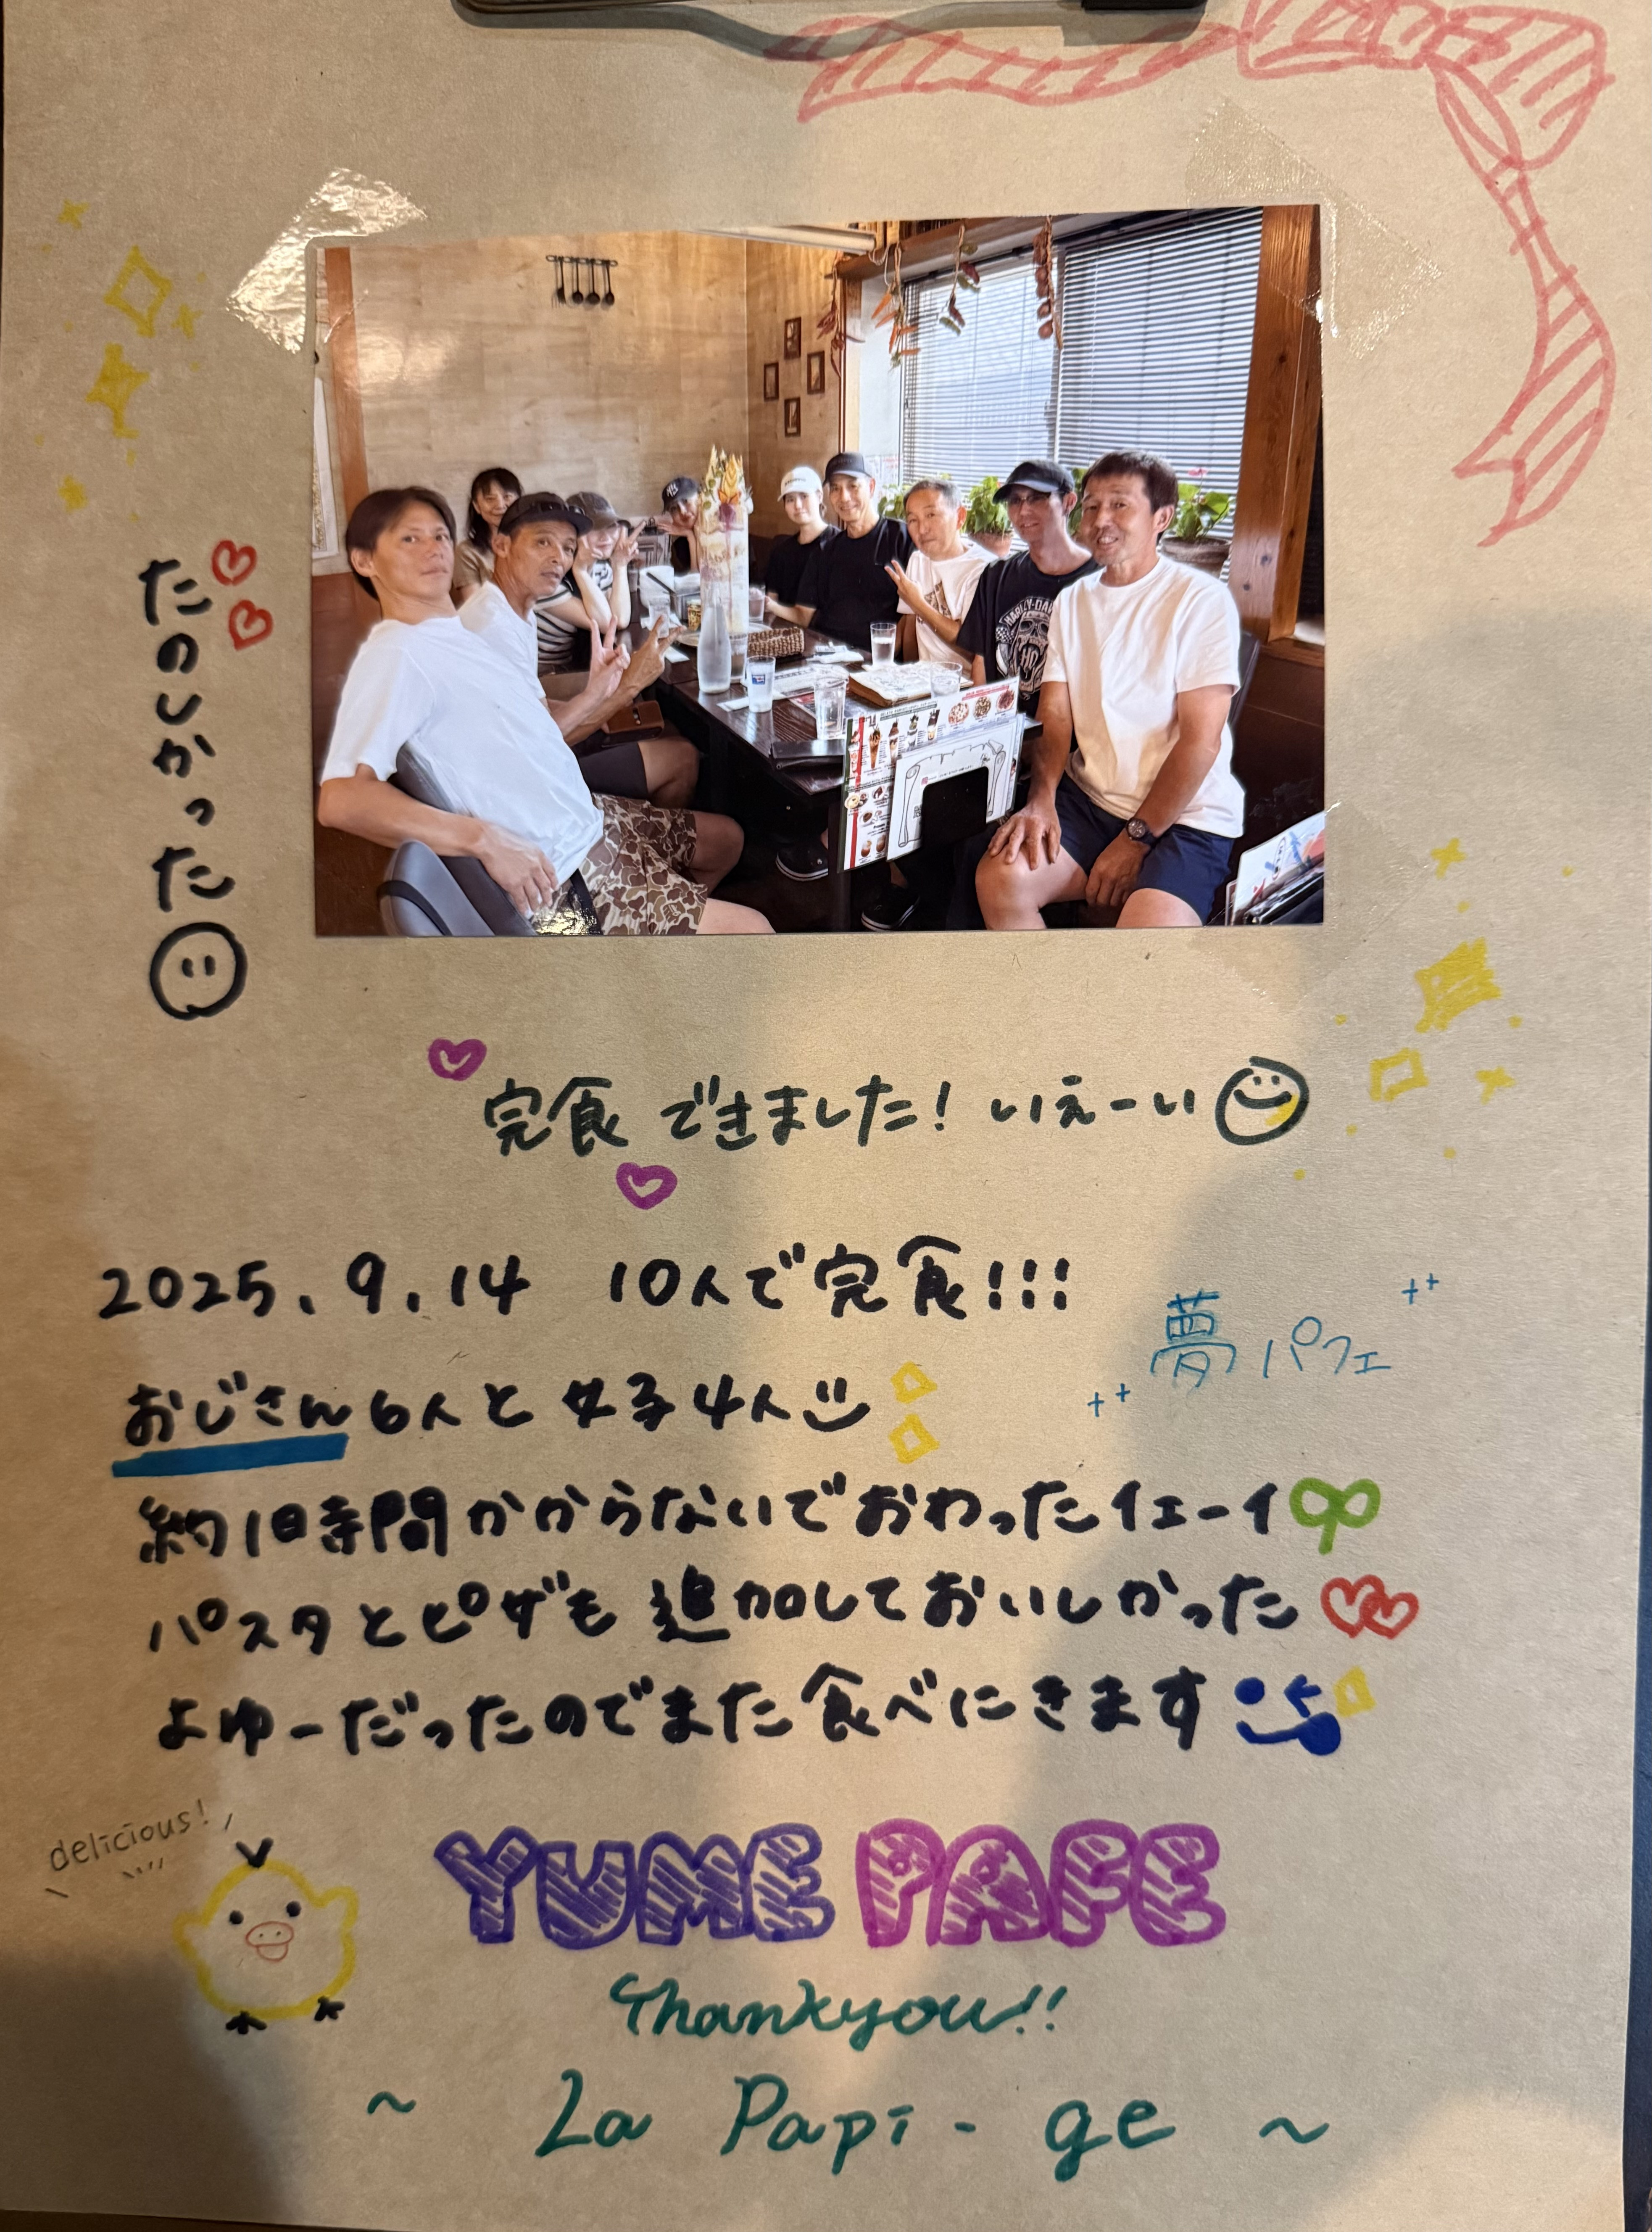 たのしかった
完食できました！いぇーい
2025.9.14 10人で完食!!!
夢パフェ
おじさん6人と女子4人
約1時間かからないでおわったイェーイ
パスタとピザも追加しておいしかった
よゆーだったのでまた食べにきます
delicious!
YUME PAFE
Thankyou!!
~ La Papi-ge ~
HARLEY-DAV